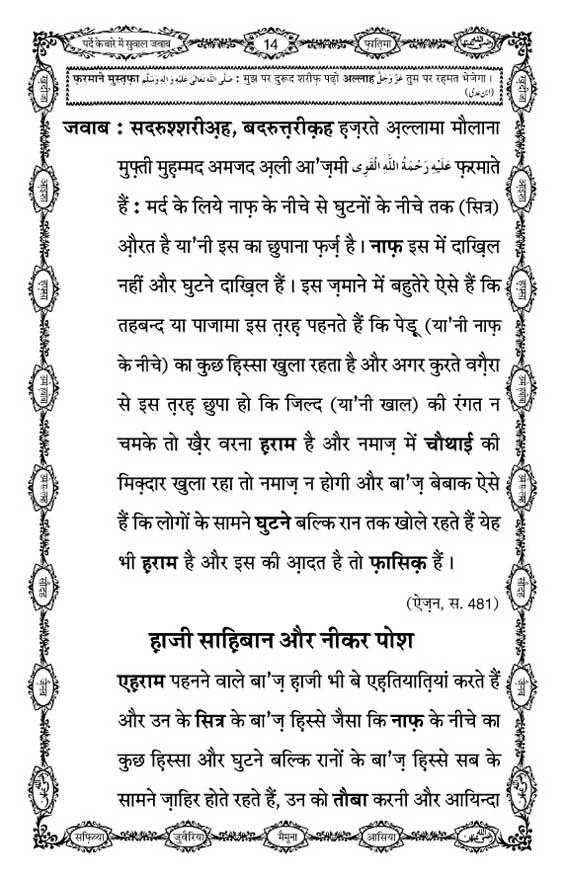 पर्दे के बारे में सुवाल जवाब
14
फ़ातिमा
फ़रमाने मुस्तफ़ा صَلَّى اللهُ تَعَالٰى عَلَيْهِ وَاٰلِهٖ وَسَلَّم : मुझ पर दुरूद शरीफ़ पढ़ो अल्लाह عَزَّوَجَلَّ तुम पर रहमत भेजेगा ।
(ابن عدی)
जवाब : सदरुश्शरीअ़ह, बदरुत्तरीक़ह हज़रते अ़ल्लामा मौलाना
मुफ़्ती मुह़म्मद अमजद अ़ली आ'ज़मी عَلَيْهِ رَحْمَةُ اللهِ الْقَوِى फ़रमाते
हैं : मर्द के लिये नाफ़ के नीचे से घुटनों के नीचे तक (सित्र)
औ़रत है या'नी इस का छुपाना फ़र्ज़ है । नाफ़ इस में दाख़िल
नहीं और घुटने दाख़िल हैं । इस ज़माने में बहुतेरे ऐसे हैं कि
तहबन्द या पाजामा इस त़रह़ पहनते हैं कि पेड़ू (या'नी नाफ़
के नीचे) का कुछ हिस्सा खुला रहता है और अगर कुरते वग़ैरा
से इस त़रह़ छुपा हो कि जिल्द (या'नी खाल) की रंगत न
चमके तो ख़ैर वरना ह़राम है और नमाज़ में चौथाई की
मिक़्दार खुला रहा तो नमाज़ न होगी और बा'ज़ बेबाक ऐसे
हैं कि लोगों के सामने घुटने बल्कि रान तक खोले रहते हैं येह
भी ह़राम है और इस की आ़दत है तो फ़ासिक़ हैं ।
(ऐज़न, स. 481)
ह़ाजी साह़िबान और नीकर पोश
एह़राम पहनने वाले बा'ज़ ह़ाजी भी बे एह़तियात़ियां करते हैं
और उन के सित्र के बा'ज़ हिस्से जैसा कि नाफ़ के नीचे का
कुछ हिस्सा और घुटने बल्कि रानों के बा'ज़ हिस्से सब के
सामने ज़ाहिर होते रहते हैं, उन को तौबा करनी और आयिन्दा
सफ़िय्या
जुवैरिया
मैमूना
आसिया